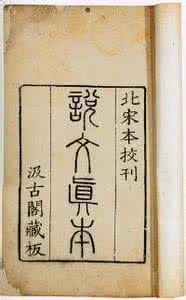 北宋本校刊
說文真本
汲古閣藏板